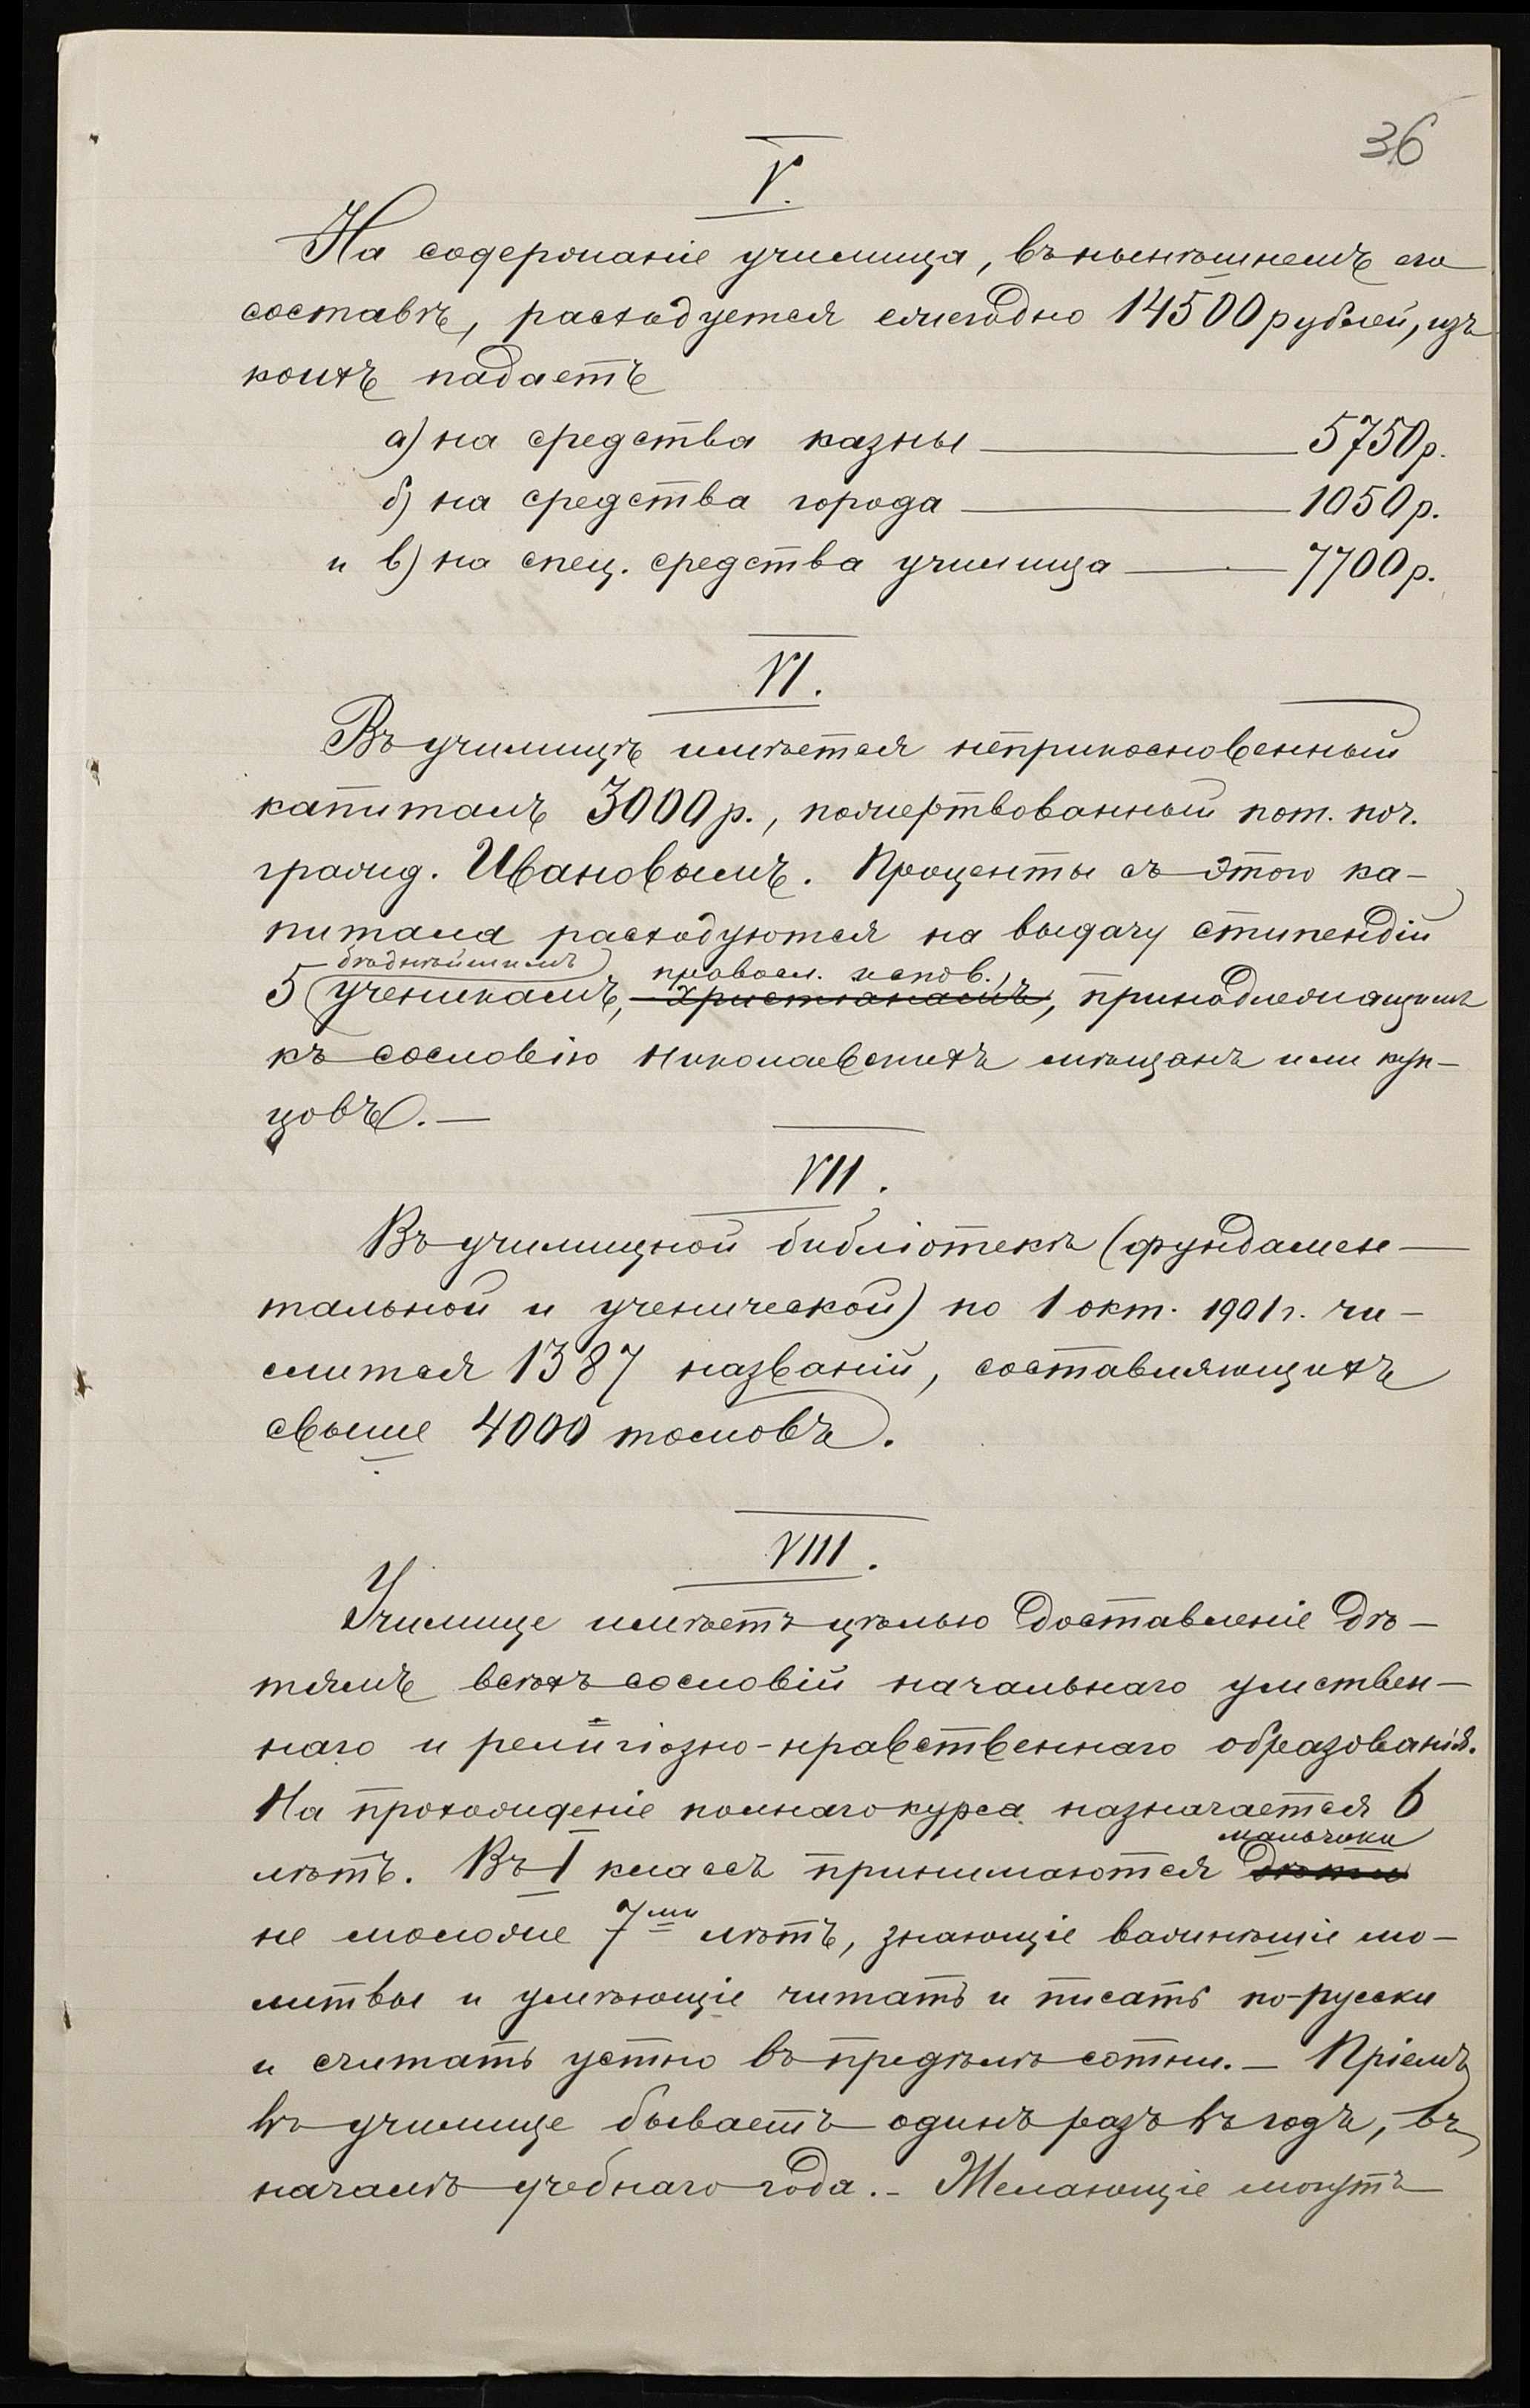 36
V.
На содержаніе училища, въ нынѣшнемъ его
составѣ, расходуется ежегодно 14500 рублей, изъ
коихъ падаетъ
а) на средства казны — 5750 р.
б) на средства города — 1050 р.
и в) на спец. средства училища — 7700 р.
VI.
Въ училищѣ имѣется неприкосновенный
капиталъ 3000 р., пожертвованный пот. поч.
гражд. Ивановымъ. Проценты съ этого ка-
питала расходуются на выдачу стипендій
бѣднѣйшимъ правосл. испов.
5 ученикамъ, христіанамъ, принадлежащимъ
къ сословію Николаевскихъ мѣщанъ или куп-
цовъ. —
VII.
Въ училищной библіотекѣ (фундамен-
тальной и ученической) по 1 окт. 1901 г. чи-
слится 1387 названій, составляющихъ
свыше 4000 томовъ.
VIII.
Училище имѣетъ цѣлью доставленіе дѣ-
тямъ всѣхъ сословій начальнаго умствен-
наго и религіозно-нравственнаго образованія.
На прохожденіе полнаго курса назначается 6
мальчики
лѣтъ. Въ I классъ принимаются дѣти
не моложе 7ми лѣтъ, знающіе важнѣйшіе мо-
литвы и умѣющіе читать и писать по-русски
и считать устно въ предѣлѣ сотни. — Пріемъ
въ училище бываетъ одинъ разъ въ годъ, въ
началѣ учебнаго года. - Желающіе могутъ